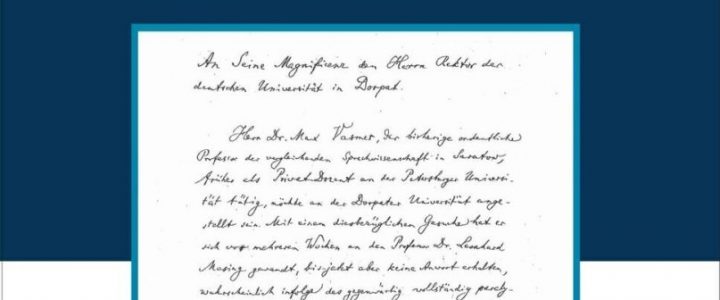 An Seine Magnifizenz den Herrn Rektor der
deutschen Universität in Dorpat.
Herr Dr. Max Vasmer, der bisherige ordentliche
Professor der vergleichenden Sprachwissenschaft in Saratow,
früher als Privat-Dozent an der Petersburger Universi-
tät tätig, möchte an der Dorpater Universität ange-
stellt sein. Mit einem diesbezüglichen Gesuche hat er
sich vor mehreren Wochen an den Professor Dr. Leonhard
Masing gewandt, bis jetzt aber keine Antwort erhalten,
wahrscheinlich infolge des gegenwärtig vollständig paraly-